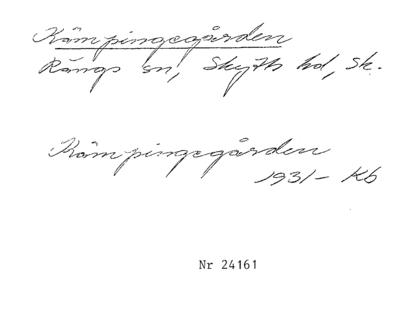 Kämpingegården
Rängs sn, Skytts hd, Sk.
Kämpingegården
1931- Kb
Nr 24161